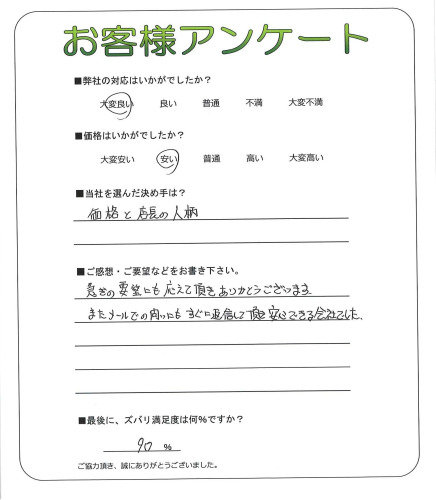 お客様アンケート
■弊社の対応はいかがでしたか？
大変良い 良い 普通 不満 大変不満
■価格はいかがでしたか？
大変安い 安い 普通 高い 大変高い
■当社を選んだ決め手は？
価格と店長の人柄
■ご感想・ご要望などをお書き下さい。
急せの要望にも応えて頂きありがとうございます
またメールでの問いにもすぐに返信して頂き安心できる会社でした。
■最後に、ズバリ満足度は何％ですか？
90 %
ご協力頂き、誠にありがとうございました。